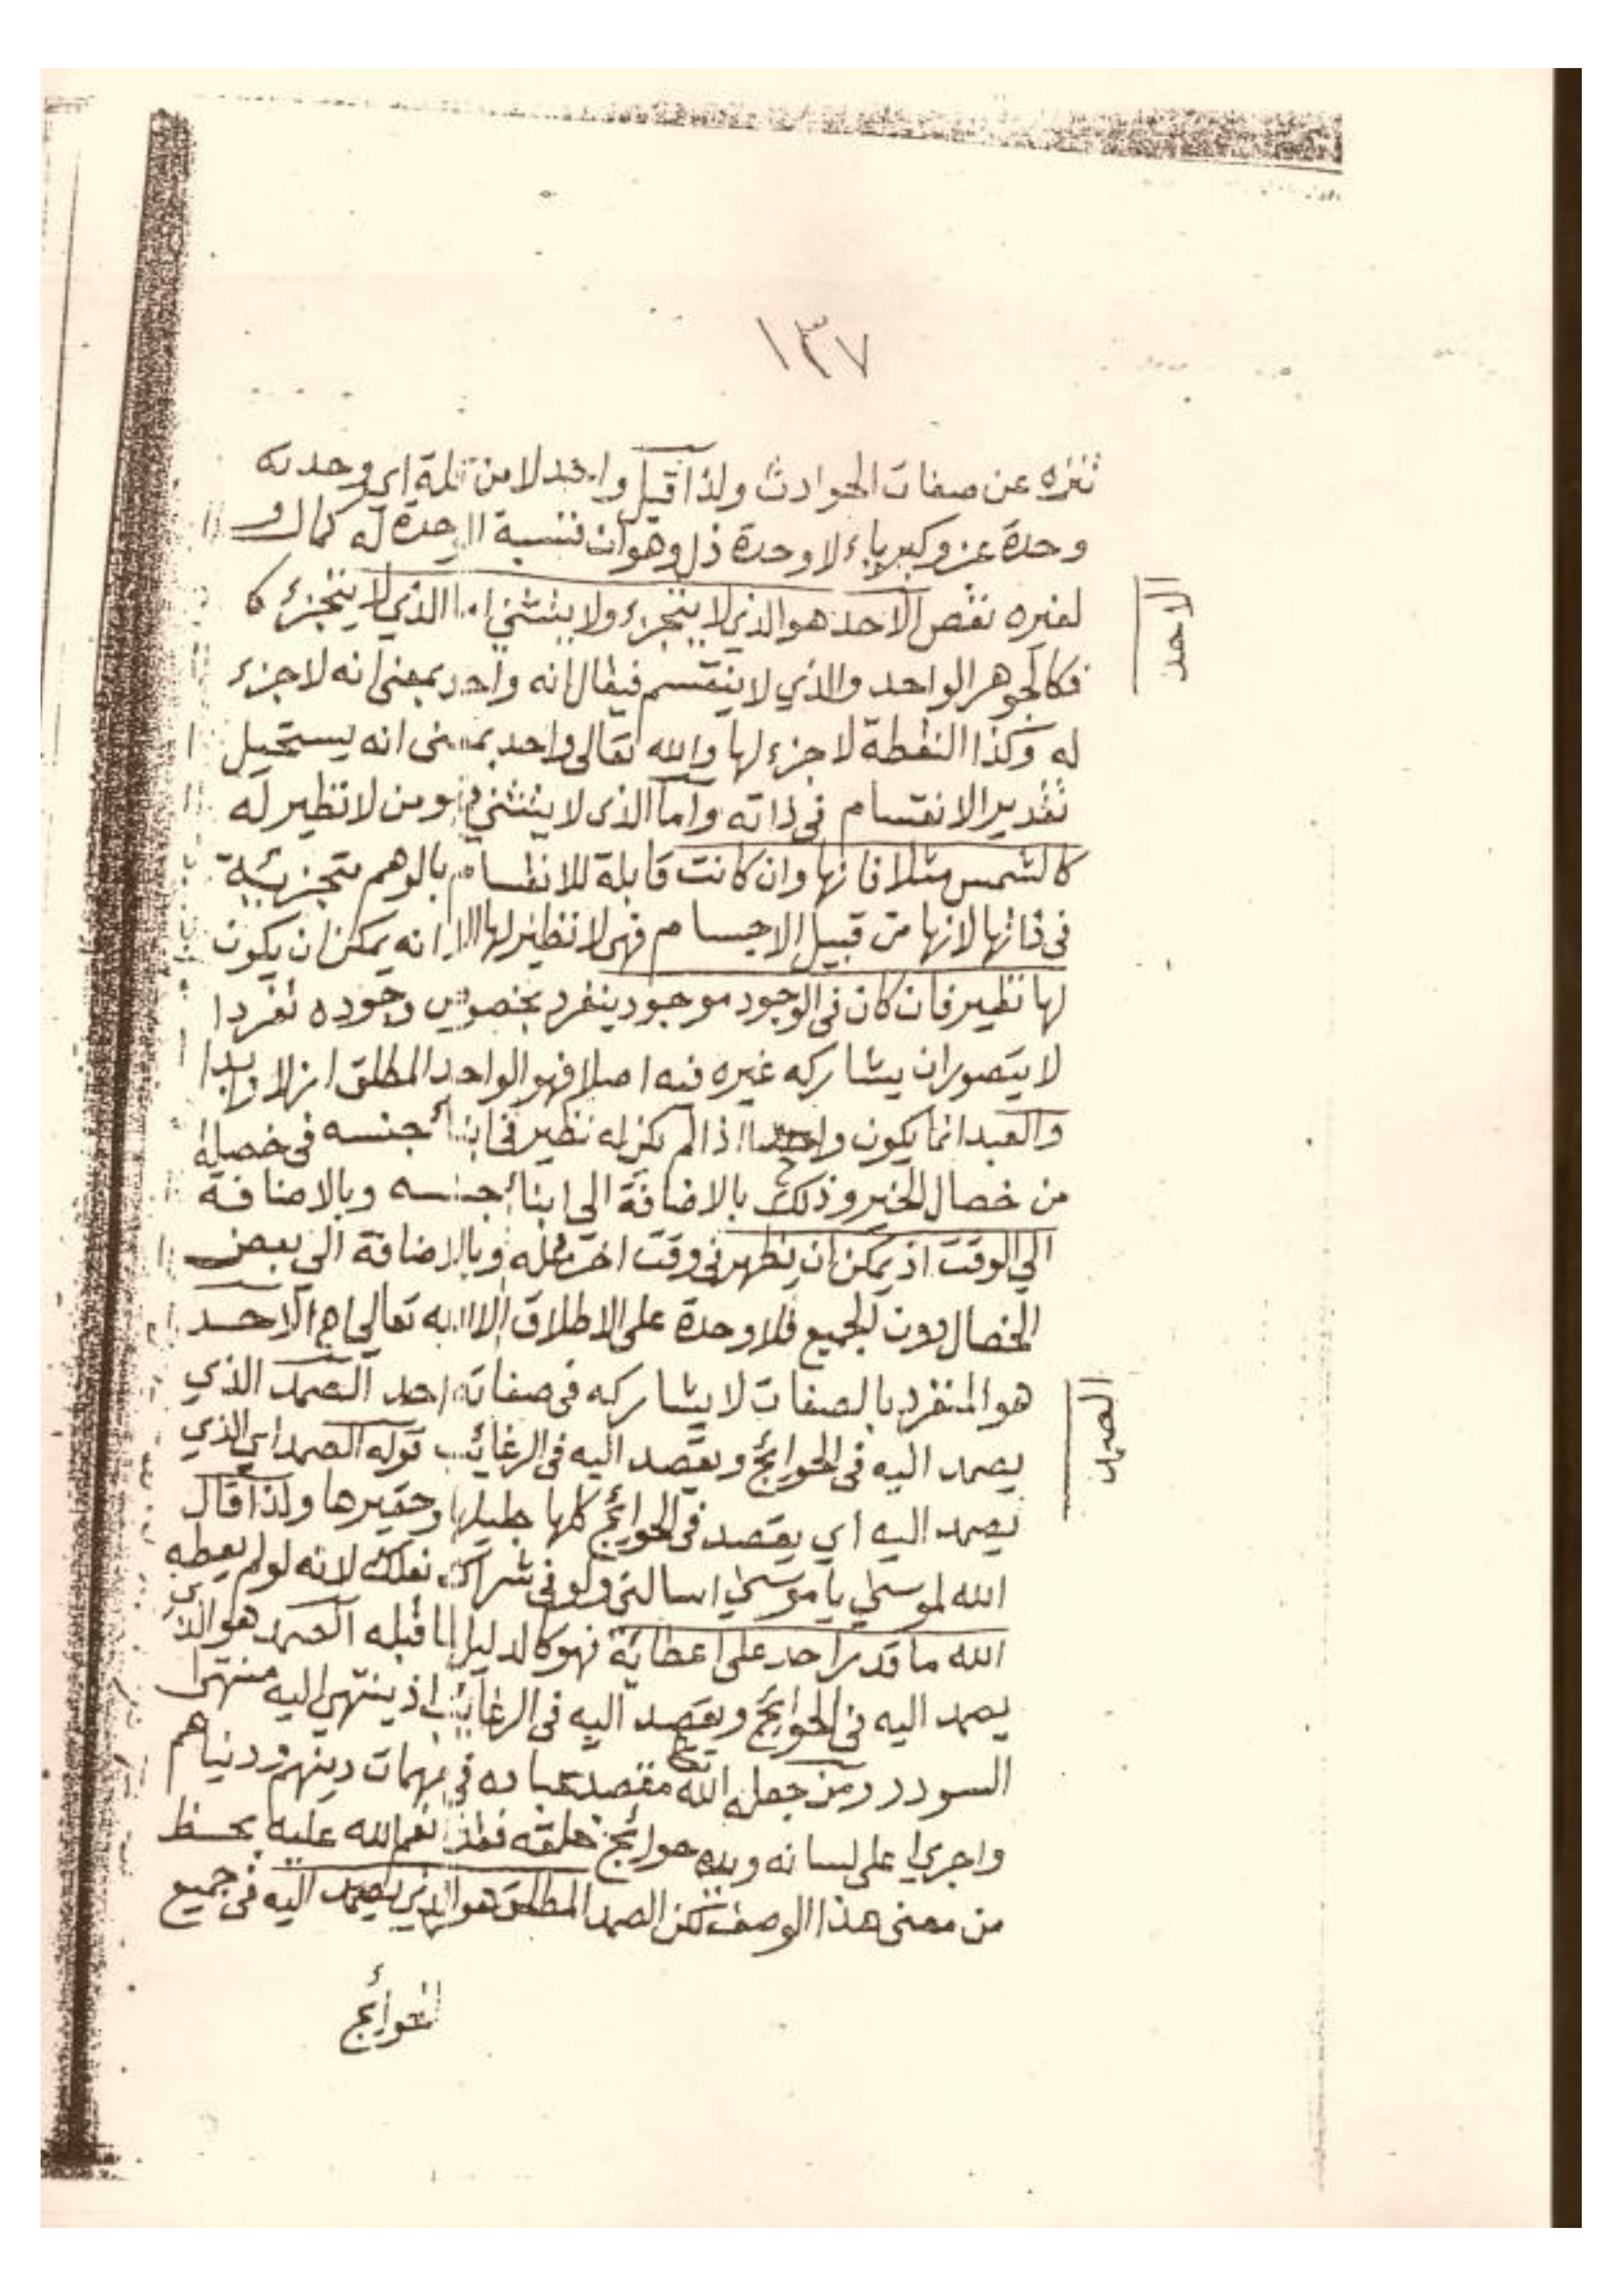 ١٣٧
تنزه عن صفات الحوادث ولذا قيل واحد لا من قلة اي وحدته
وحدة عز وكبرياء لا وحدة ذل وهوان فنسبة الوحدة له كمال و
لغيره نقص الاحد هو الذي لا يتجزء ولا ينثني اما الذي لا يتجزء كا
فكالجوهر الواحد والذي لا ينقسم فيقال انه واحد بمعنى انه لا جزء
له وكذا النقطة لا جزء لها والله تعالى واحد بمعنى انه يستحيل
تقدير الانقسام في ذاته واما الذى لا ينثني فهو من لا نظير له
كالشمس مثلا فانها وان كانت قابلة للانقسام بالوهم متجزيئة
فى ذاتها لانها من قبيل الاجسام فهى لا نظير لها الا انه يمكن ان يكون
لها نظير فان كان فى الوجود موجود ينفرد بخصوص وجوده تفردا
لا يتصور ان يشاركه غيره فيه اصلا فهو الواحد المطلق ازلا وابدا
والعبد انما يكون واحدا اذا لم يكن له نظير في ابناء جنسه فى خصلة
من خصال الخير وذلك بالاضافة الى ابناء جنسه وبالاضافة
الي الوقت اذ يمكن ان يظهر فى وقت اخر مثله وبالاضافة الى بعض
الخصال دون الجميع فلا وحدة على الاطلاق الا لله تعالى اه الاحد
هو المنفرد بالصفات لا يشاركه فى صفاته احد الصمد الذي
يصمد اليه فى الحوائج ويقصد اليه فى الرغائب قوله الصمد اي الذي
يصمد اليه اي يقصد فى الحوائج كلها جليلها وحقيرها ولذا قال
الله لموسى يا موسى اسالني ولو فى شراك نعلك لانه لو لم يعطه
الله ما قدر احد على اعطائه فهو كالدليل لما قبله الصمد هو الذي
يصمد اليه فى الحوائج ويقصد اليه فى الرغائب اذ ينتهي اليه منتهى
السودد ومن جعله الله تعالى مقصد عباده فى مهمات دينهم ودنياهم
واجرى على لسانه ويده حوائج خلقه فقد انعم الله عليه بحظ
من معنى هذا الوصف لكن الصمد المطلق هو الذي يصمد اليه فى جميع
الحوائج
الاحد
الصمد